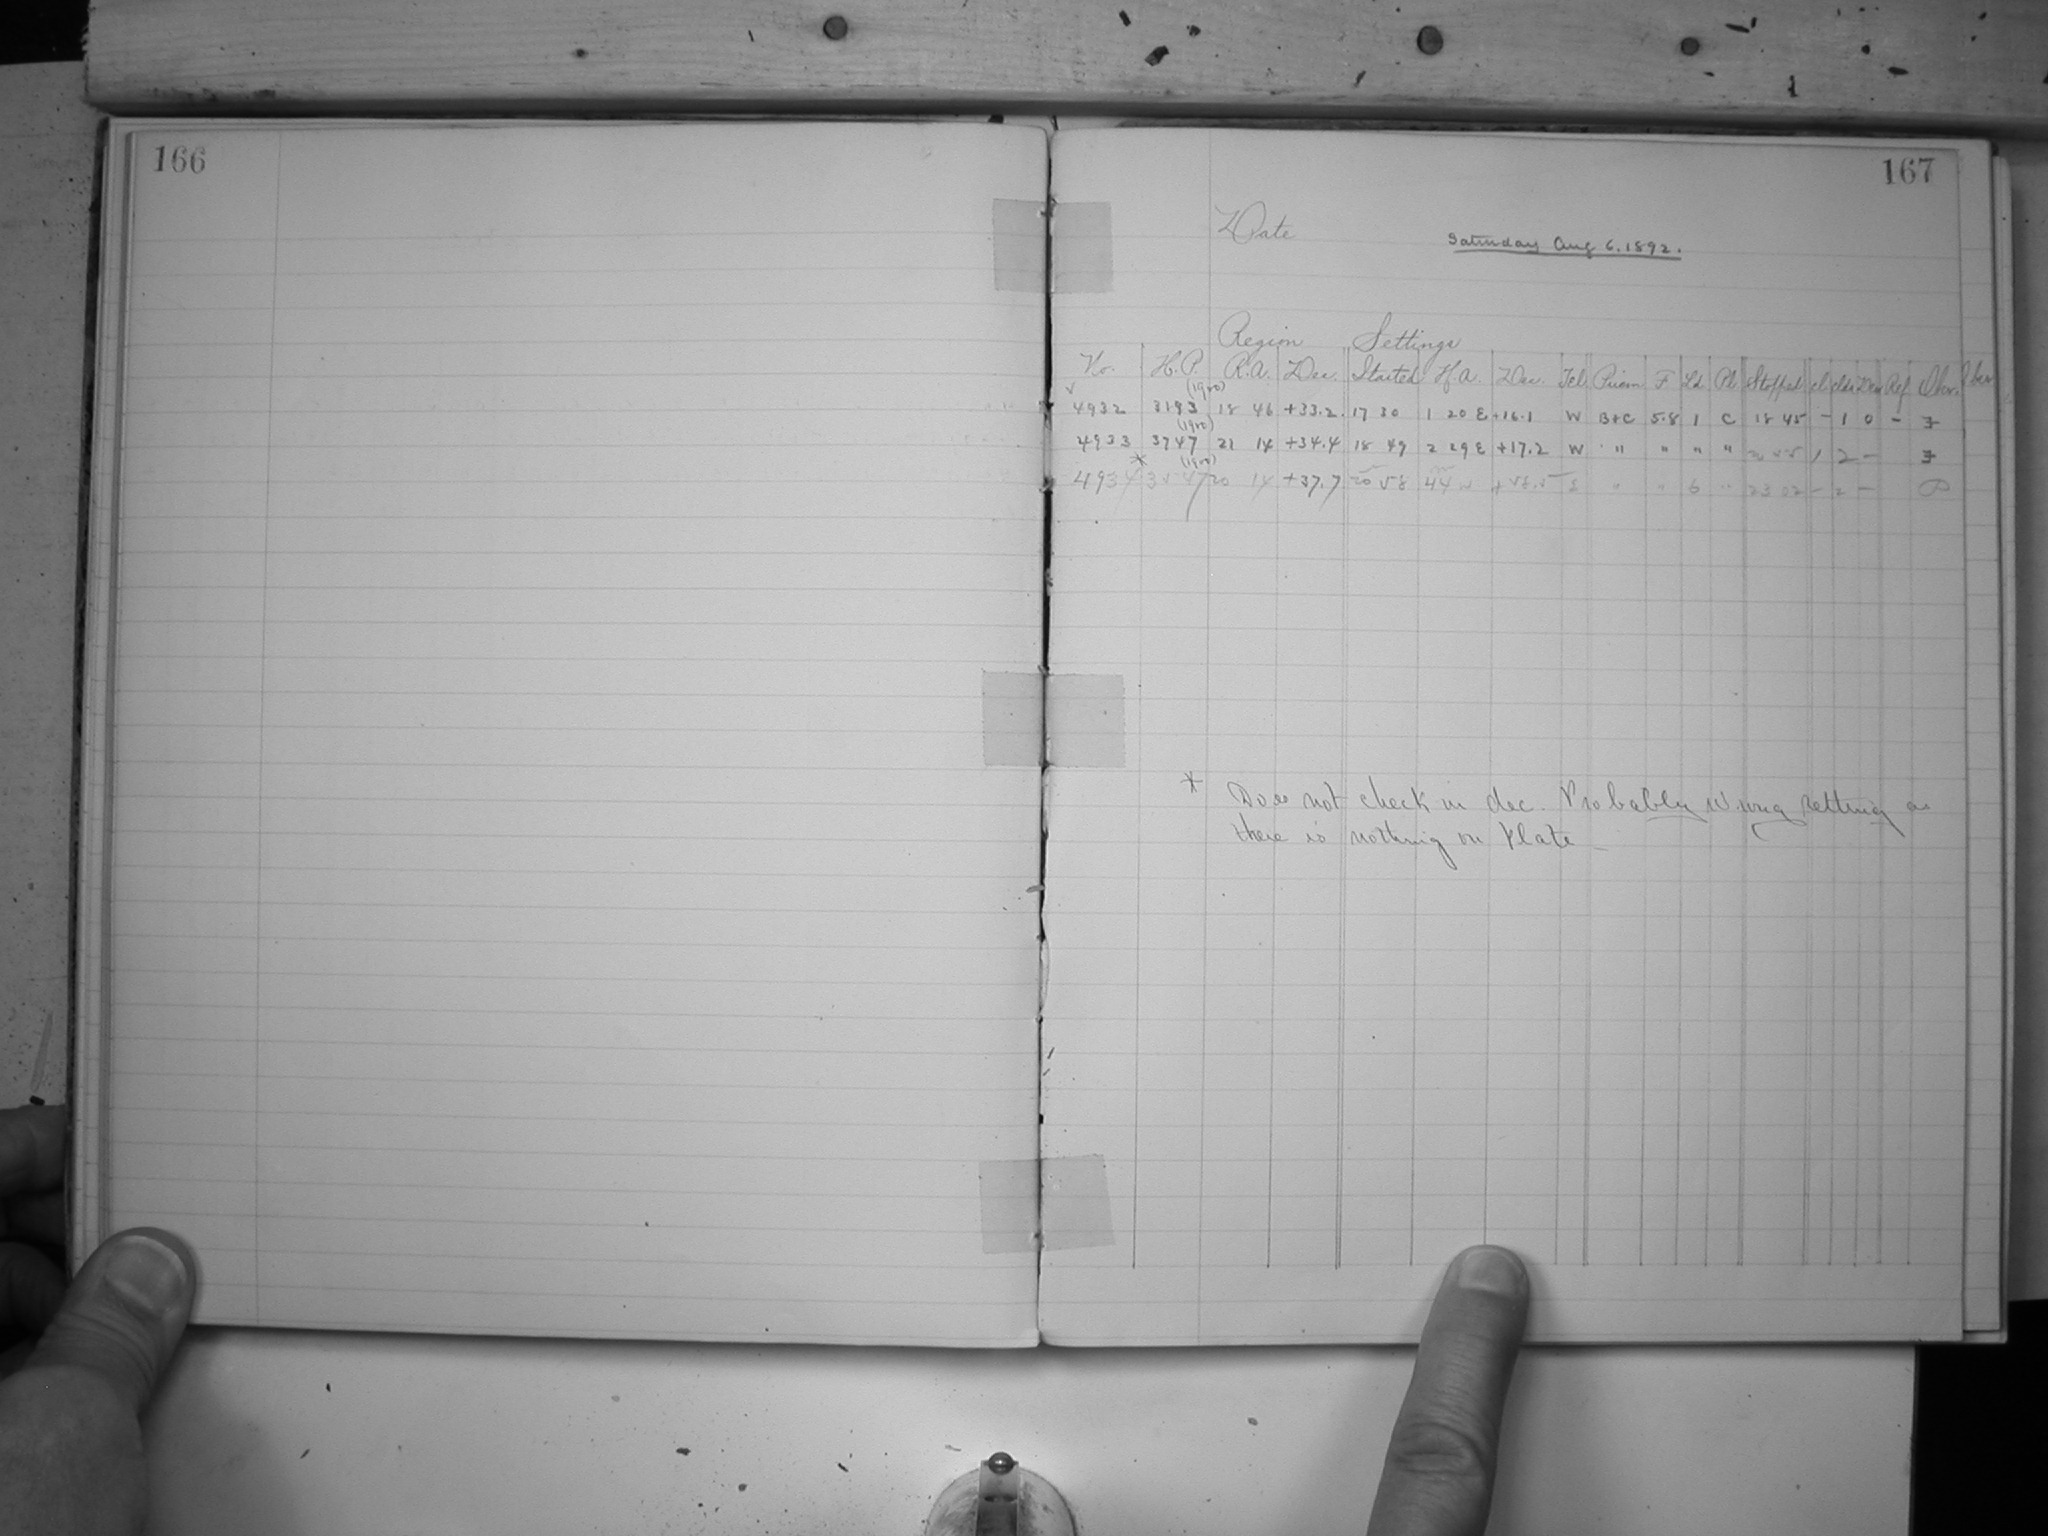 166
167
Date
Saturday Aug 6. 1892.
Region Settings
No. H.P. R.A. Dec. Started H.A. Dec. Tel. Prism F Ld Pl Stopped cl clds Dew Ref Obsr.
(1900)
4932 3193 18 46 +33.2 17 30 1 20 E +16.1 W B+C 5.8 1 C 18 45 - 1 0 - F
(1900)
4933 3747 21 14 +34.4 18 49 2 29 E +17.2 W " " " " 1 2 - F
* (1900)
4934 20 14 +37.7 20 58 44 W E " " 6 " 23 02 - 2 -
* Does not check in dec. Probably wrong setting as
there is nothing on Plate